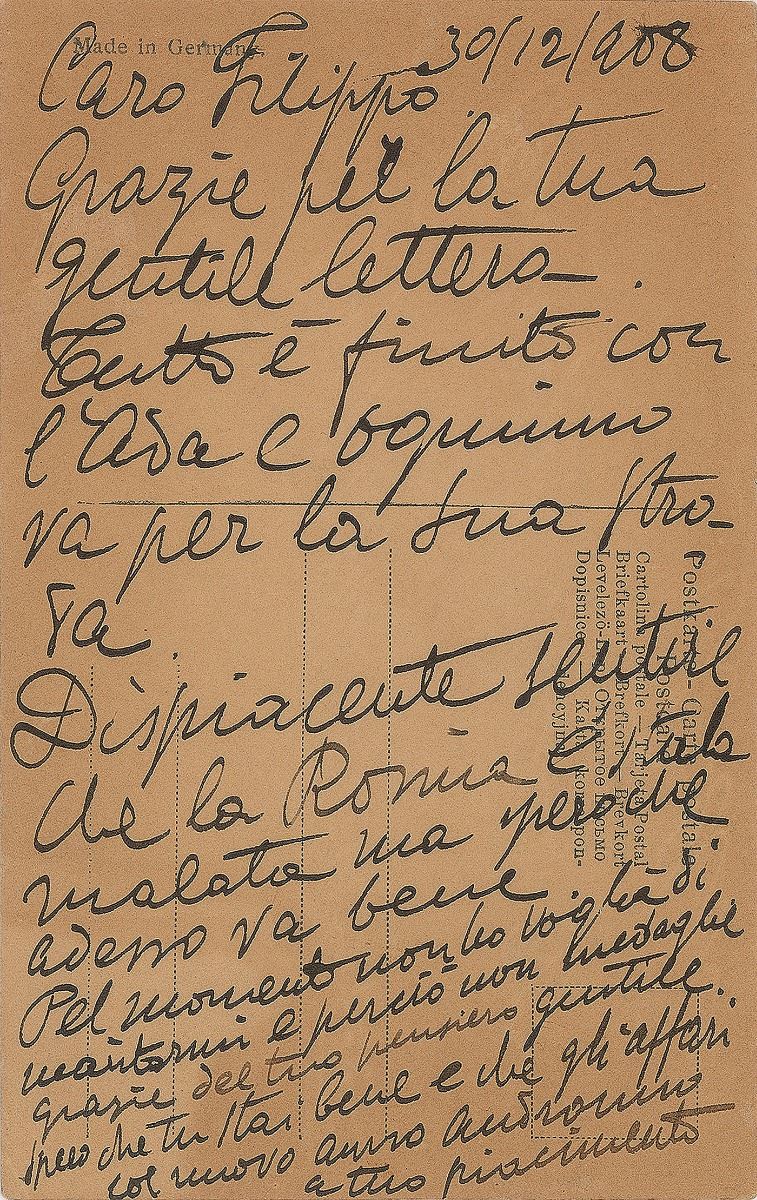 Made in Germany.
30/12/908
Caro Filippo
Grazie per la tua
gentile lettera.
Tutto è finito con
l'Ada e ognuno
va per la sua stra-
da.
Dispiacente sentire
che la Roma è stata
malata ma spero che
adesso va bene.
Pel momento non ho voglia di
maritarmi e perciò non
grazie del tuo pensiero gentile.
spero che tu stai bene e che gli affari
col nuovo anno andranno
a tuo piacimento
Postkarte - Carte postale
Cartolina postale — Tarjeta Postal
Briefkaart — Brefkort — Brevkort
Levelező-Lap — Открытое письмо
Dopisnice — Karta korespon-
dencyjna